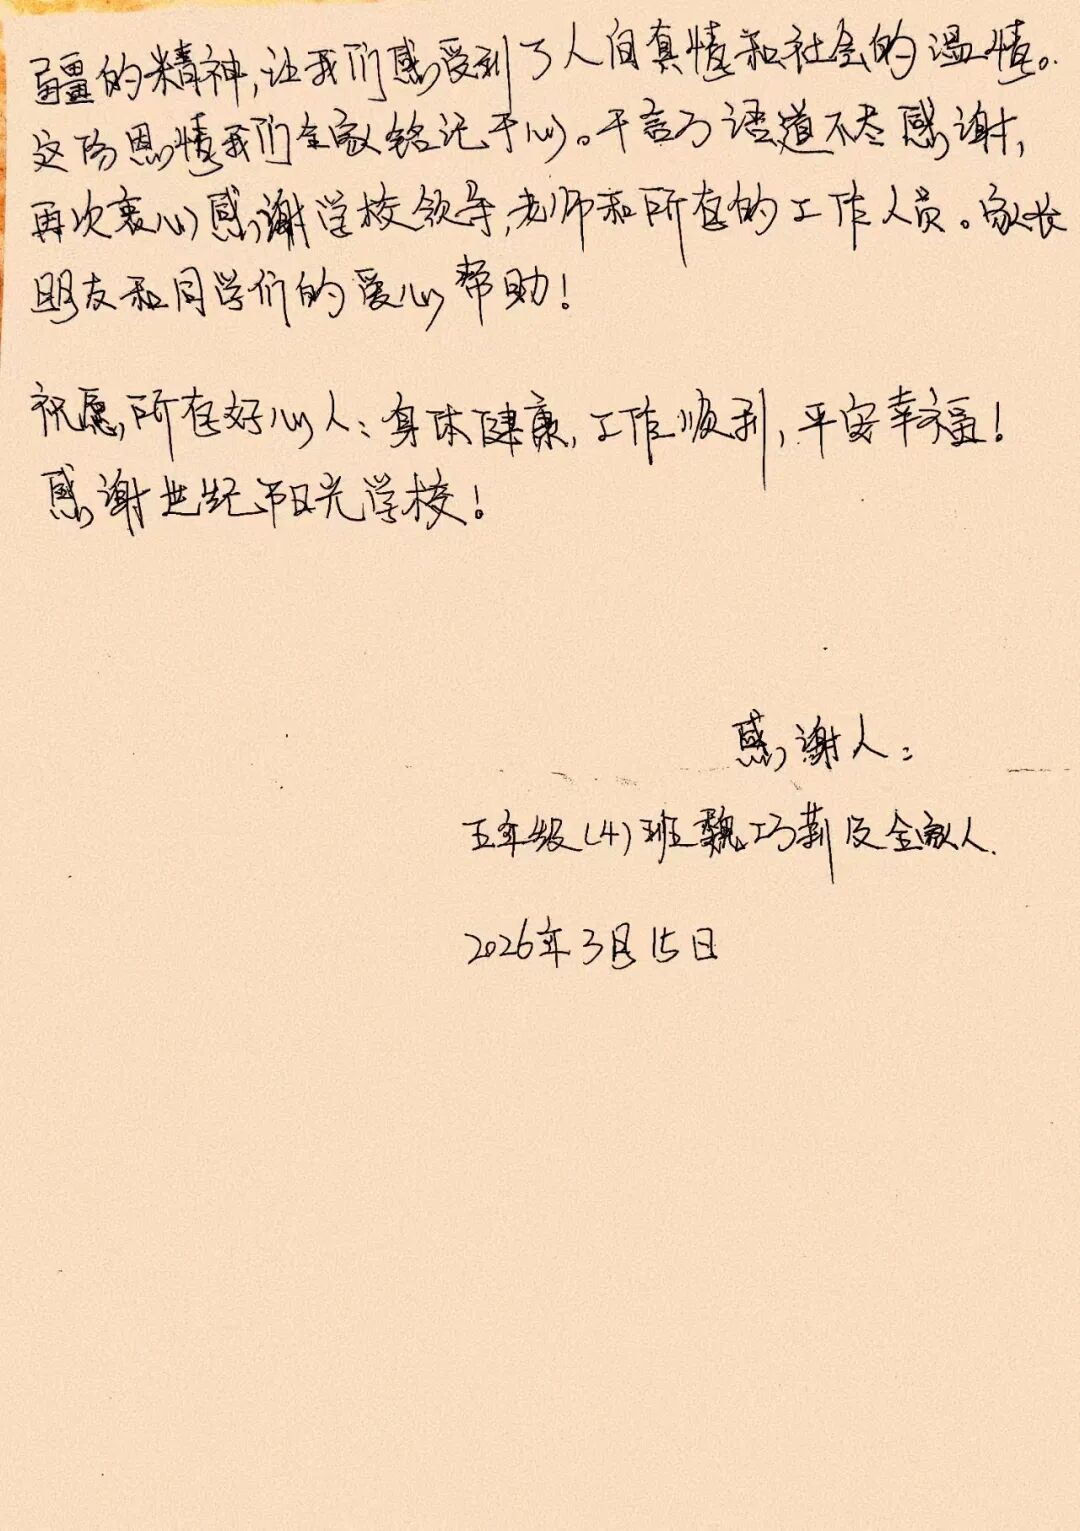 疆的精神,让我们感受到了人间真情和社会的温情。
这份恩情我们全家铭记于心。千言万语道不尽感谢,
再次衷心感谢学校领导,老师和所有的工作人员。家长
朋友和同学们的爱心帮助!
祝愿,所有好心人:身体健康,工作顺利,平安幸福!
感谢世纪阳光学校!
感谢人:
五年级(4)班魏巧莉及全家人.
2026年3月15日